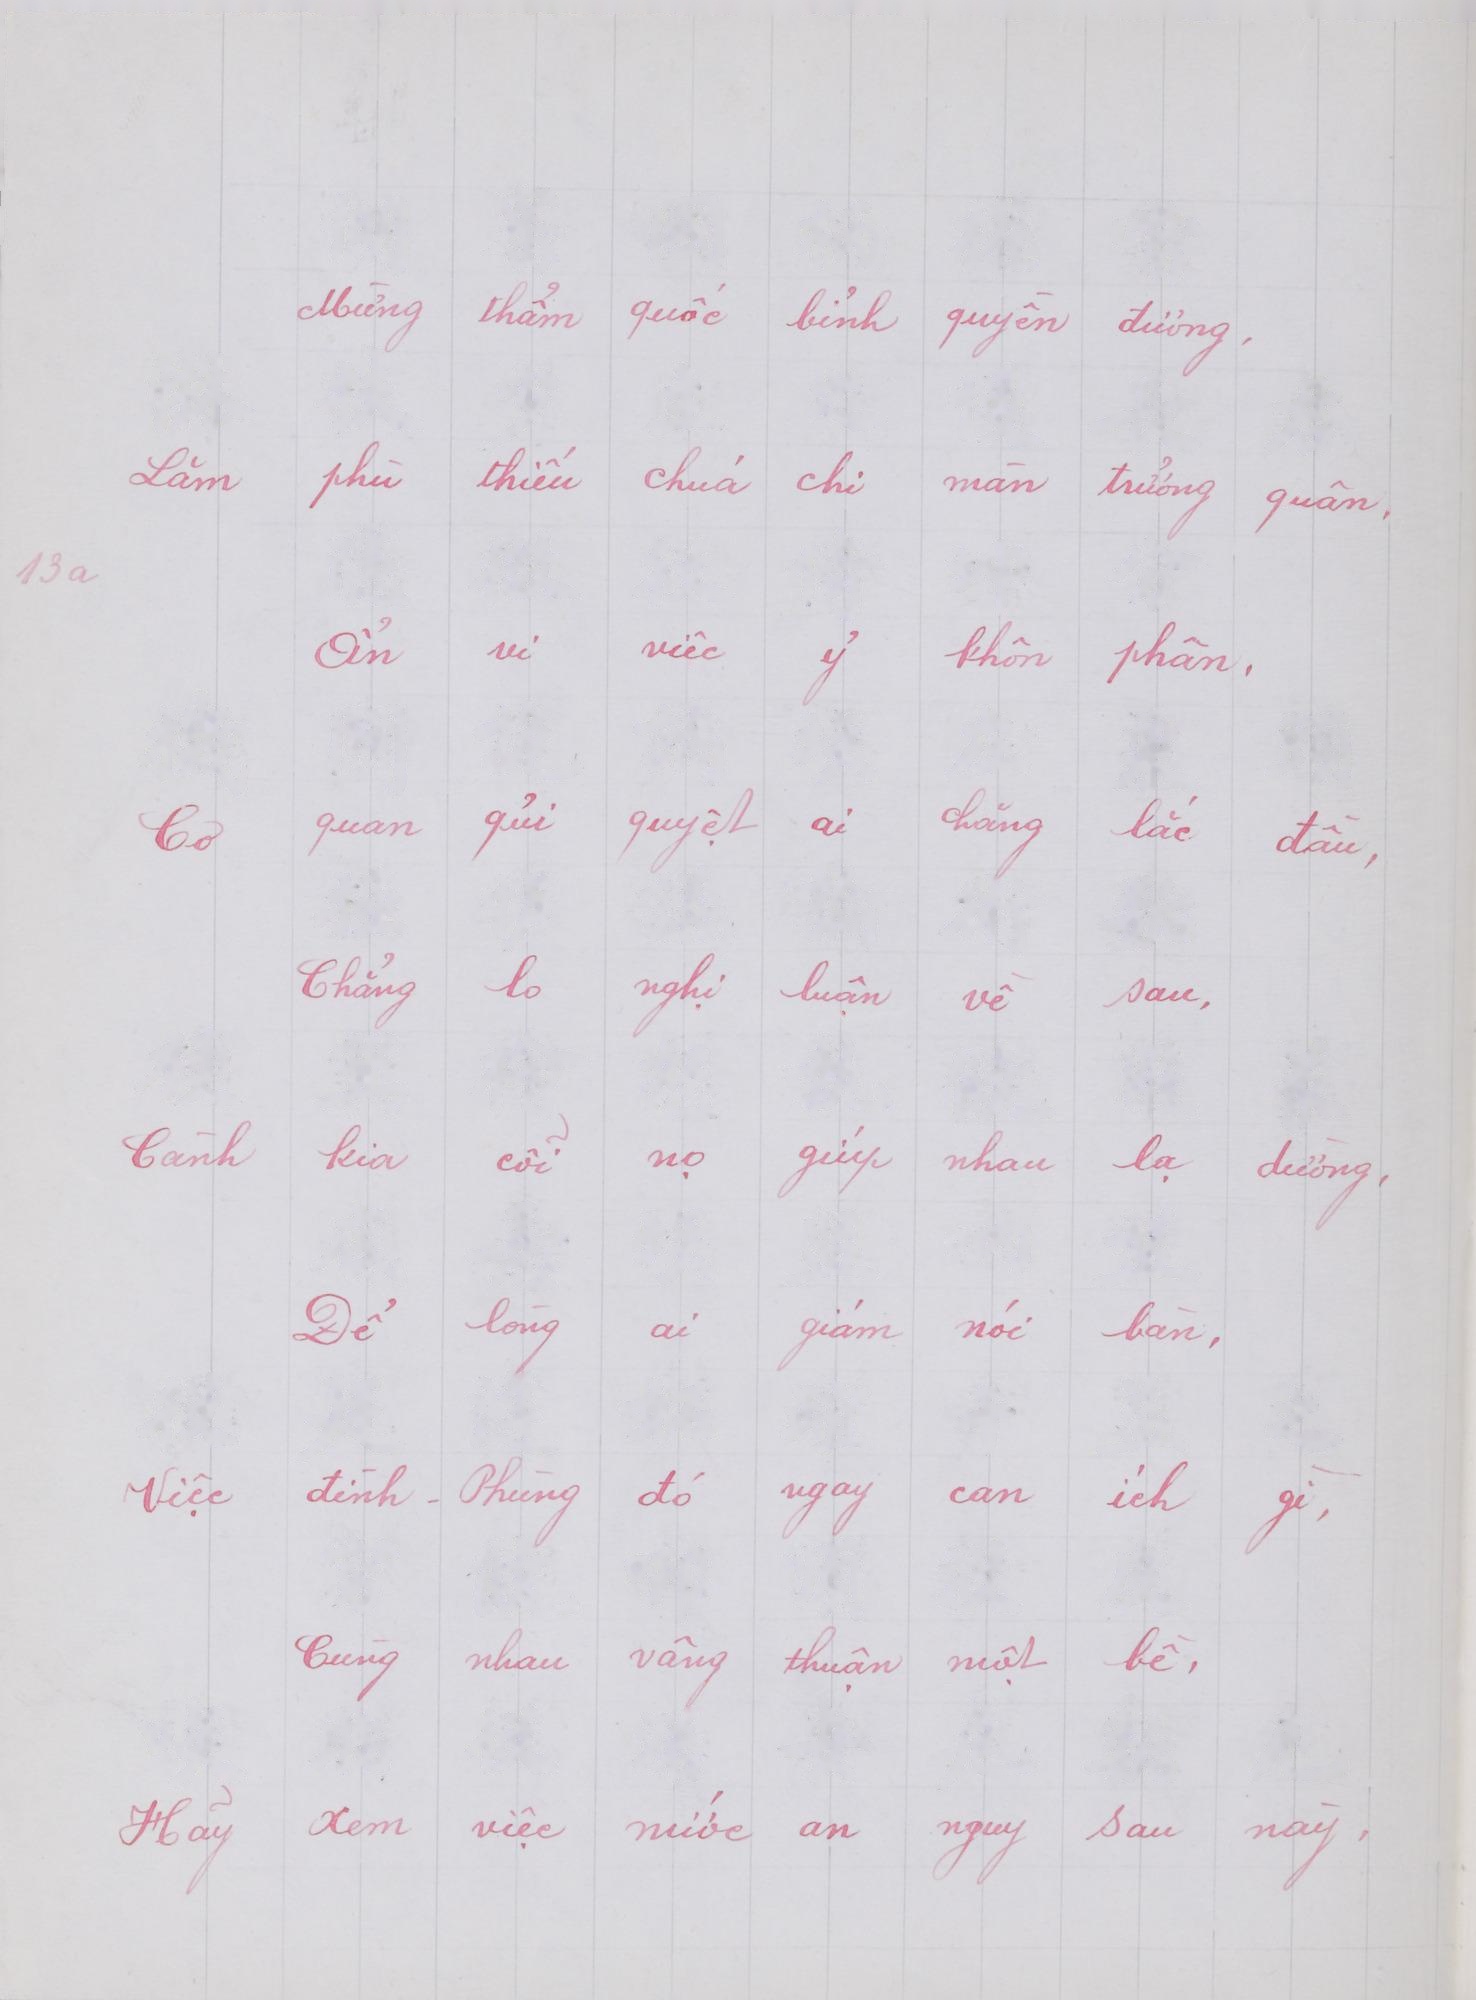 Mừng thẩm quốc bỉnh quyền đương,
Lăm phù thiếu chuá chi màn trưởng quân,
13a
Ẩn vi viêc ỷ khôn phân,
Cơ quan qủi quyệt ai chăng lắc đầu,
Chẳng lo nghị luận về sau,
Cành kia cỗi nọ giúp nhau lạ dường,
Để lòng ai giám nói bàn,
Việc đình - Phùng đó ngay can ích gì,
Cùng nhau vâng thuận một bề,
Hãy xem việc nước an nguy sau này,